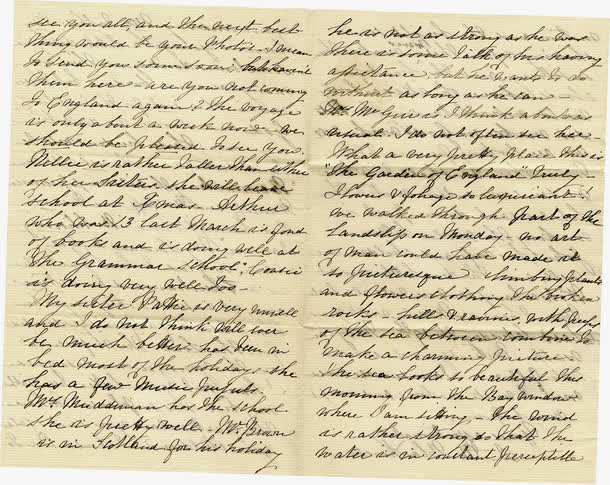 see you all, and the next best
thing would be your Photos - I mean
to send you some soon; but haven't
them here - are you not coming
to England again? The voyage
is only about a week now we
should be pleased to see you.
Nellie is rather taller than either
of her Sisters she will leave
school at Xmas. Arthur
who was 13 last March is fond
of books and is doing well at
"The Grammar School"
is doing very well too.
My sister Pattie is very unwell
and I do not think will ever
be much better has been in
bed most of the holidays she
has a few Music pupils.
Mrs Muddiman has the school
she is pretty well - Mr Brown
is in Scotland for his holiday
he is not as strong as he was
there is some talk of his having
assistance but he wants to do
without as long as he can
Mr McGuir is I think about as
usual. I do not often see her
What a very pretty place this is
"The Garden of England" truly -
Flowers & foliage so luxuriant!
we walked through part of the
Landslip on Monday - no art
of man could have made it
so picturesque climbing plants
and flowers clothing the broken
rocks - hills & ravines, with peeps
of the sea between combine to
make a charming picture
The sea looks so beautiful this
morning from the Bay window
where I am sitting - The wind
is rather strong so that the
water is in constant perceptible